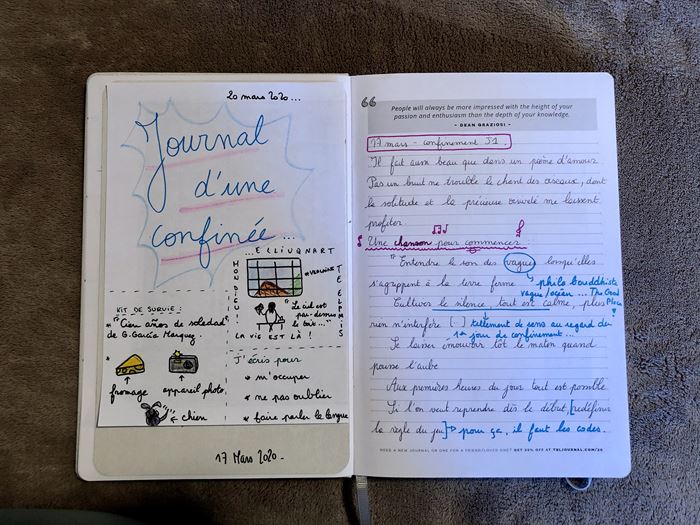 20 mars 2020...
Journal
d'une
confinée...
KIT DE SURVIE:
* "Cien años de soledad"
de G. García Marquez
fromage
appareil photo
chien
... ELLIUQNART
MON DIEU
TE ELPMIS
*VERLAINE
"Le ciel est
par-dessus
le toit..."
LA VIE EST LÀ !
J'écris pour
* m'occuper
* ne pas oublier
* faire parler la langue
17 Mars 2020.
People will always be more impressed with the height of your
passion and enthusiasm than the depth of your knowledge.
- DEAN GRAZIOSI -
17 mars - confinement J1.
Il fait aussi beau que dans un poème d'amour.
Pas un bruit ne trouble le chant des oiseaux, dont
la solitude et la précieuse me laissent
profiter.
Une chanson pour commencer
"Entendre le son des vagues lorsqu'elles
s'agrippent à la terre ferme
philo bouddhiste
vague/océan ... The Good
Place
Cultiver le silence, tout est calme, plus
rien n'interfère [.]
tellement de sens au regard du
1er jour de confinement...
Se laisser émouvoir tôt le matin quand
pousse l'aube
Aux premières heures du jour tout est possible
Si l'on veut reprendre dès le début, [redéfinir
la règle du jeu] pour ça, il faut les codes.
NEED A NEW JOURNAL OR ONE FOR A FRIEND/LOVED ONE? GET 20% OFF AT TBLJOURNAL.COM/20